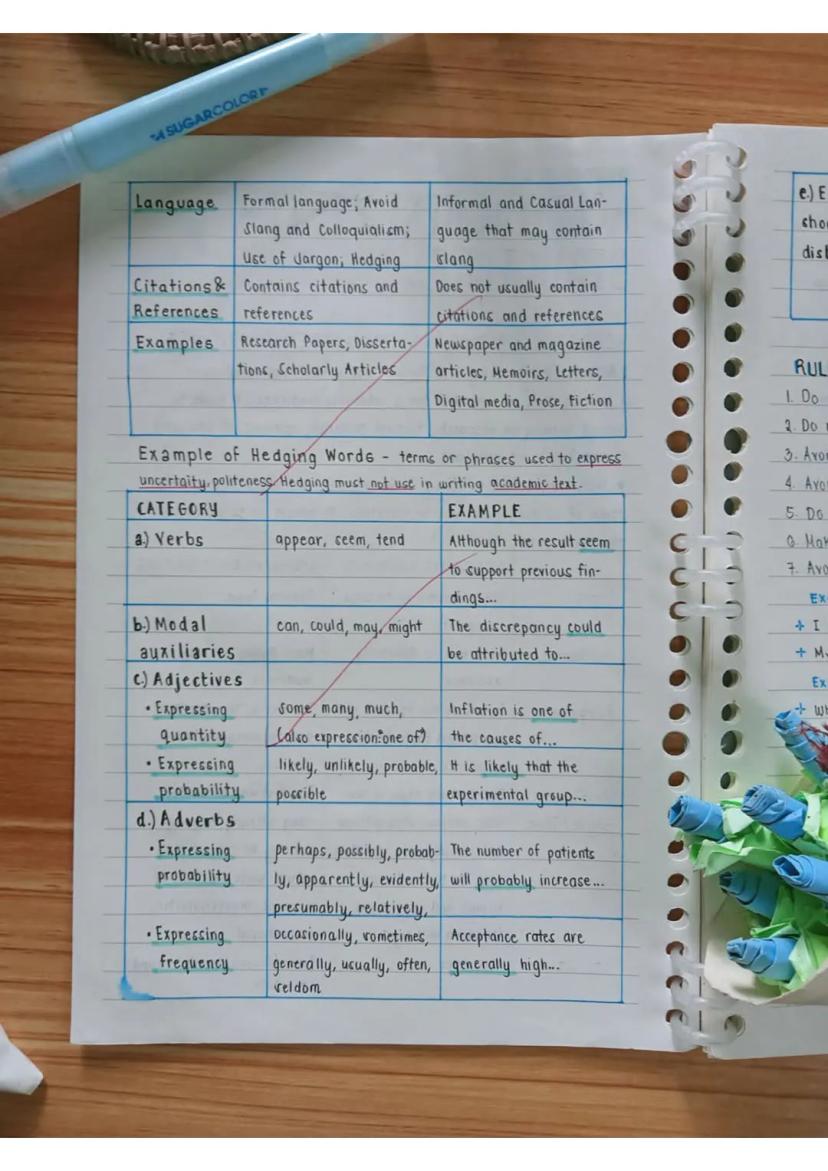 SUGARCOLOR
Language
Formal language; Avoid
Slang and Colloquialism;
Use of Jargon; Hedging
Informal and Casual Lan-
guage that may contain
slang
Citations &
References
Contains citations and
references
Does not usually contain
citations and references
Examples
Research Papers, Disserta-
tions, Scholarly Articles
Newspaper and magazine
articles, Memoirs, Letters,
Digital media, Prose, Fiction
Example of Hedging Words - terms or phrases used to express
uncertaity, politeness. Hedging must not use in writing academic text.
CATEGORY
EXAMPLE
a.) Verbs
appear, seem, tend
Although the result seem
to support previous fin-
dings...
b.) Modal
auxiliaries
can, could, may, might
The discrepancy could
be attributed to...
c.) Adjectives
• Expressing
quantity
some, many, much,
(also expression: one of)
Inflation is one of
the causes of...
• Expressing
probability
likely, unlikely, probable,
possible
It is likely that the
experimental group...
d.) Adverbs
• Expressing
probability
perhaps, possibly, probab-
ly, apparently, evidently,
presumably, relatively,
The number of patients
will probably increase...
• Expressing
frequency
occasionally, sometimes,
generally, usually, often,
seldom
Acceptance rates are
generally high...
e.) E
shou
RUL
1. Do
2. Do
3. Avoi
4. Avo
5. Do
7. Avo
Ex
+ I
+ M
Ex
+ Wh